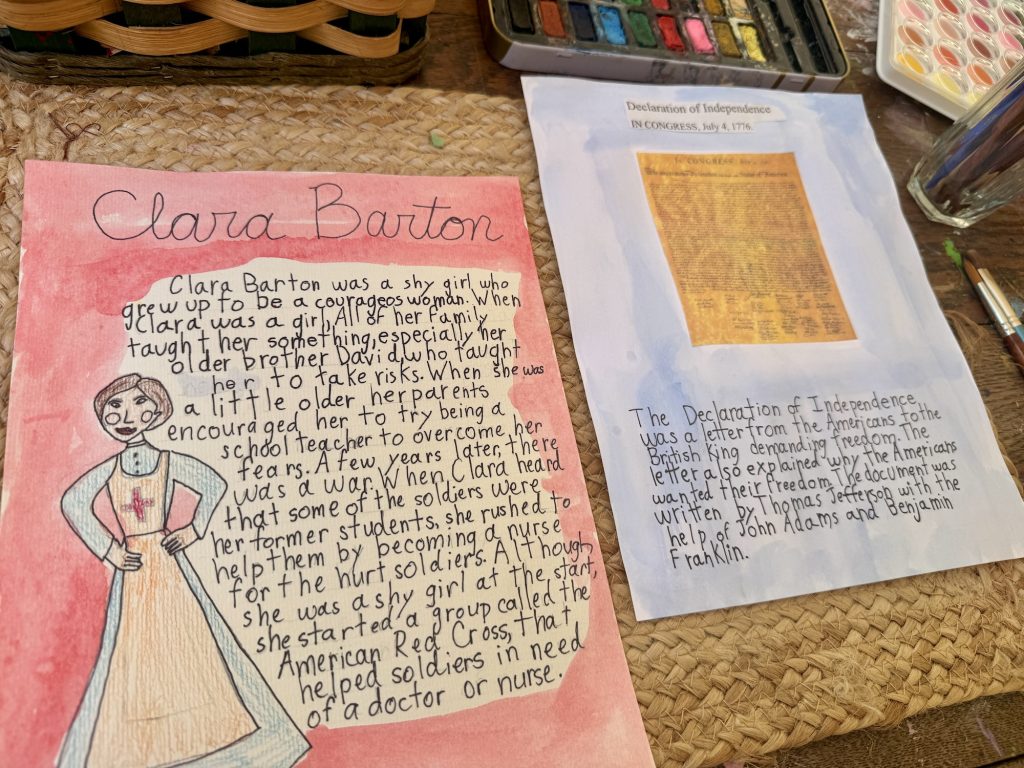 Clara Barton
Clara Barton was a shy girl who
grew up to be a courageos woman. When
Clara was a girl, All of her family
taught her something, especially her
older brother David, who taught
her to take risks. When she was
a little older, her parents
encouraged her to try being a
school teacher to overcome her
fears. A few years later, there
was a war. When Clara heard
that some of the soldiers were
her former students, she rushed to
help them by becoming a nurse
for the hurt soldiers. Although
she was a shy girl at the start,
she started a group called the
American Red Cross, that
helped soldiers in need
of a doctor or nurse.
Declaration of Independence
IN CONGRESS, July 4, 1776.
IN CONGRESS
The Declaration of Independence
was a letter from the Americans to the
British King demanding freedom. The
letter also explained why the Americans
wanted their freedom. The document was
written by Thomas Jefferson with the
help of John Adams and Benjamin
Franklin.